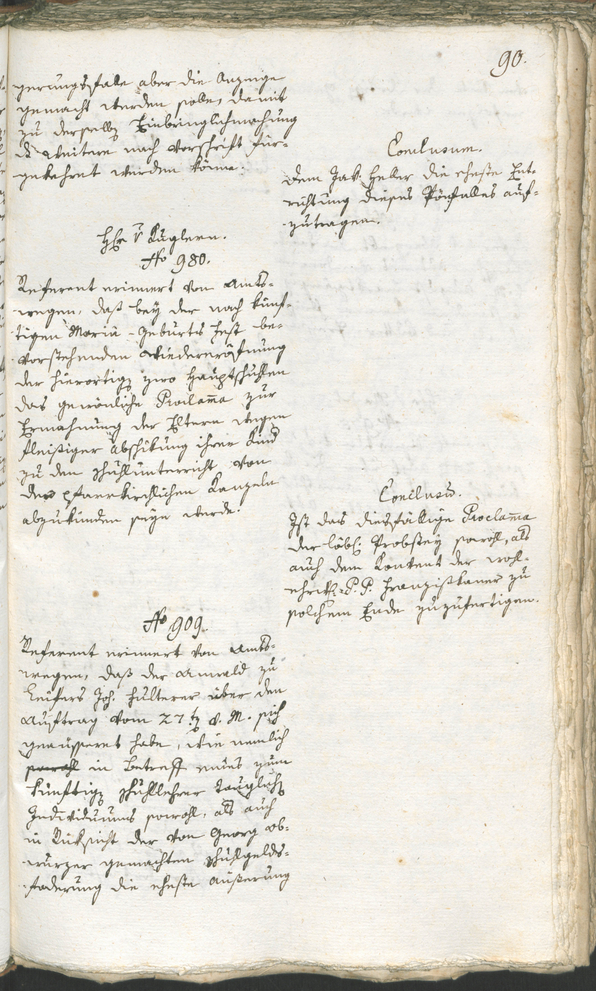 90.
gerungsfalle aber die Anzeige
gemacht werden solle, damit
zu derselben Einbringlichmachung
das Weitere nach Vorschrift für-
gekehret werden könne.
Conclusum.
Dem Jak. Heler die eheste Ent-
richtung dieses Pönfalles auf-
zutragen.
H. v. Kuglern.
No 980.
Referent erinnert von Amts-
wegen, daß bey der nach künf-
tigen Mariä-Geburts Fest be-
vorstehenden Wiedereröfnung
der hierortigen zwo Hauptschullen
das gewönliche Proclama zur
Ermahnung der Eltern wegen
fleißiger Abschikung ihrer Kind
zu dem Schullunterricht von
den pfarrkirchlichen Kanzeln
abzukünden seyn werde.
Conclus.
Ist das diesfällige Proclama
der löbl. Probstey sowohl, als
auch dem Konvent der wohl-
ehrw. P.P. Franziskaner zu
solchem Ende zuzufertigen.
No 909.
Referent erinnert von Amts-
wegen, daß der Anwald zu
Leifers Joh. Hulterer über den
Auftrag vom 27ten d. M. sich
geaussert habe, wie nemlich
sowohl in Betreff eines zum
künftigen Schullehrer tauglichen
Individuums sowohl, als auch
in Rüksicht der von Georg Ob-
wurzer gemachten Schullgelds-
foderung die eheste Äußerung